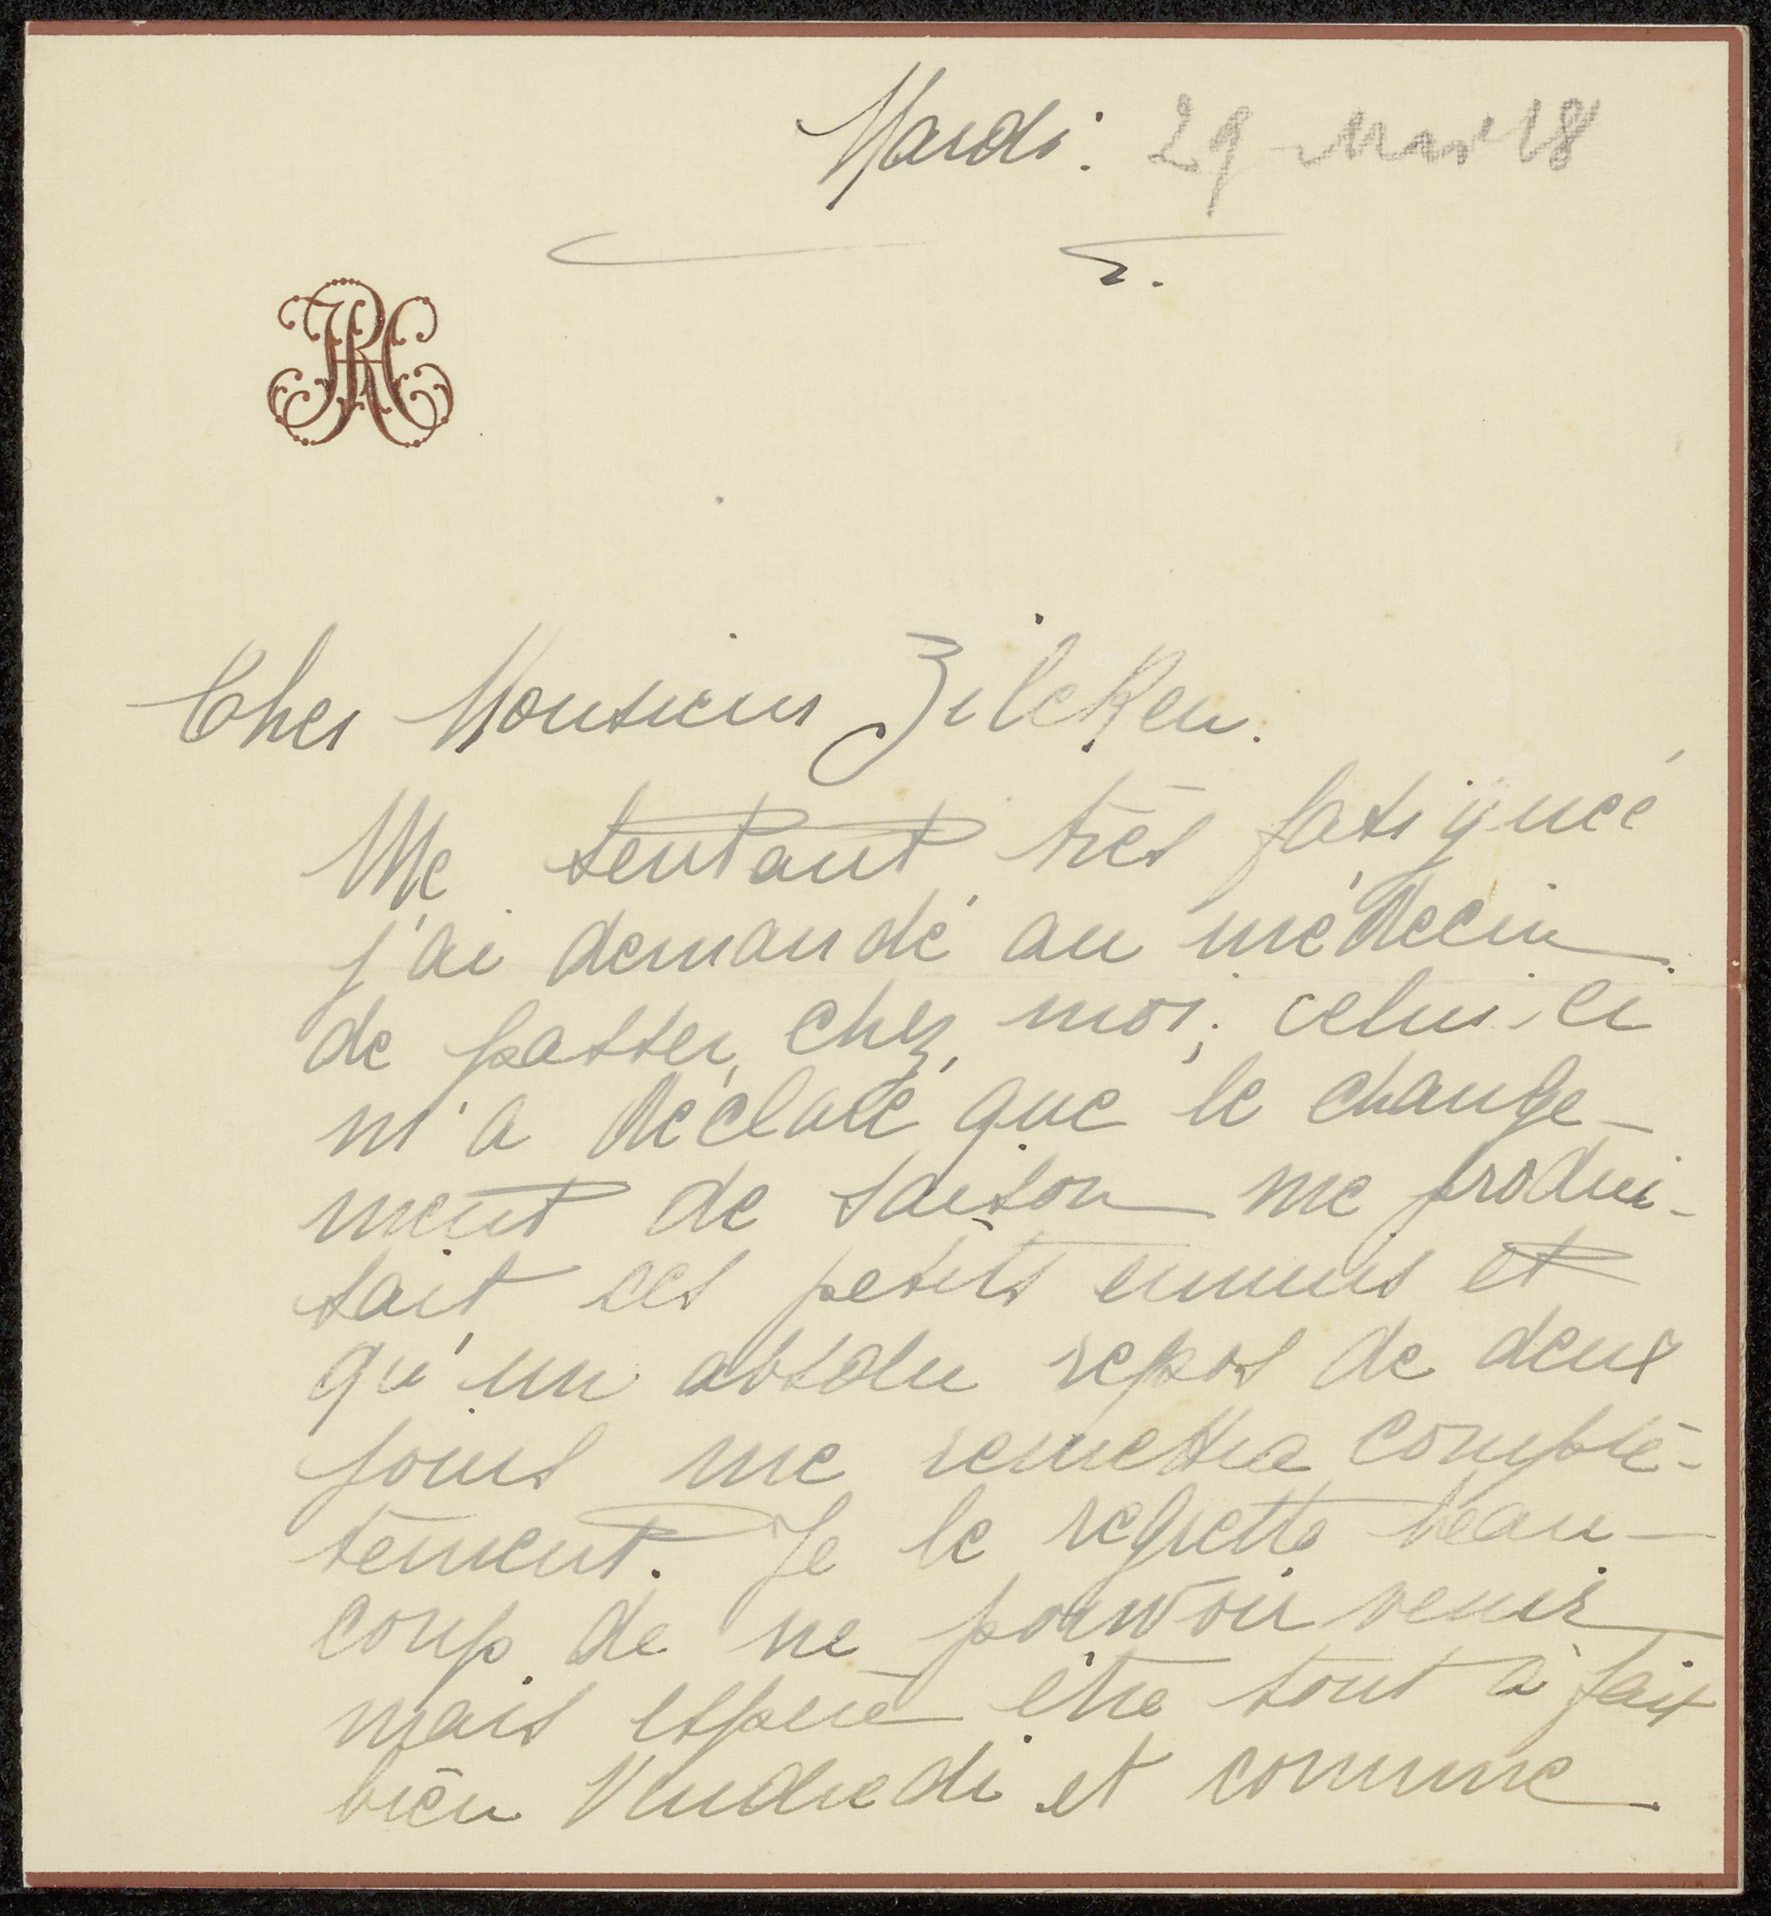 Mardi. 29 Mars 18
Cher Monsieur Zilcken.
Me sentant très fatiguée
j'ai demandé au médecin
de passer chez moi; celui-ci
m'a déclaré que le change-
ment de saison me produi-
sait ces petits ennuis et
qu'un absolu repos de deux
jours me remettra complè-
tement. Je le regrette beau-
coup de ne pouvoir venir
mais espère être tout à fait
bien Vendredi et comme